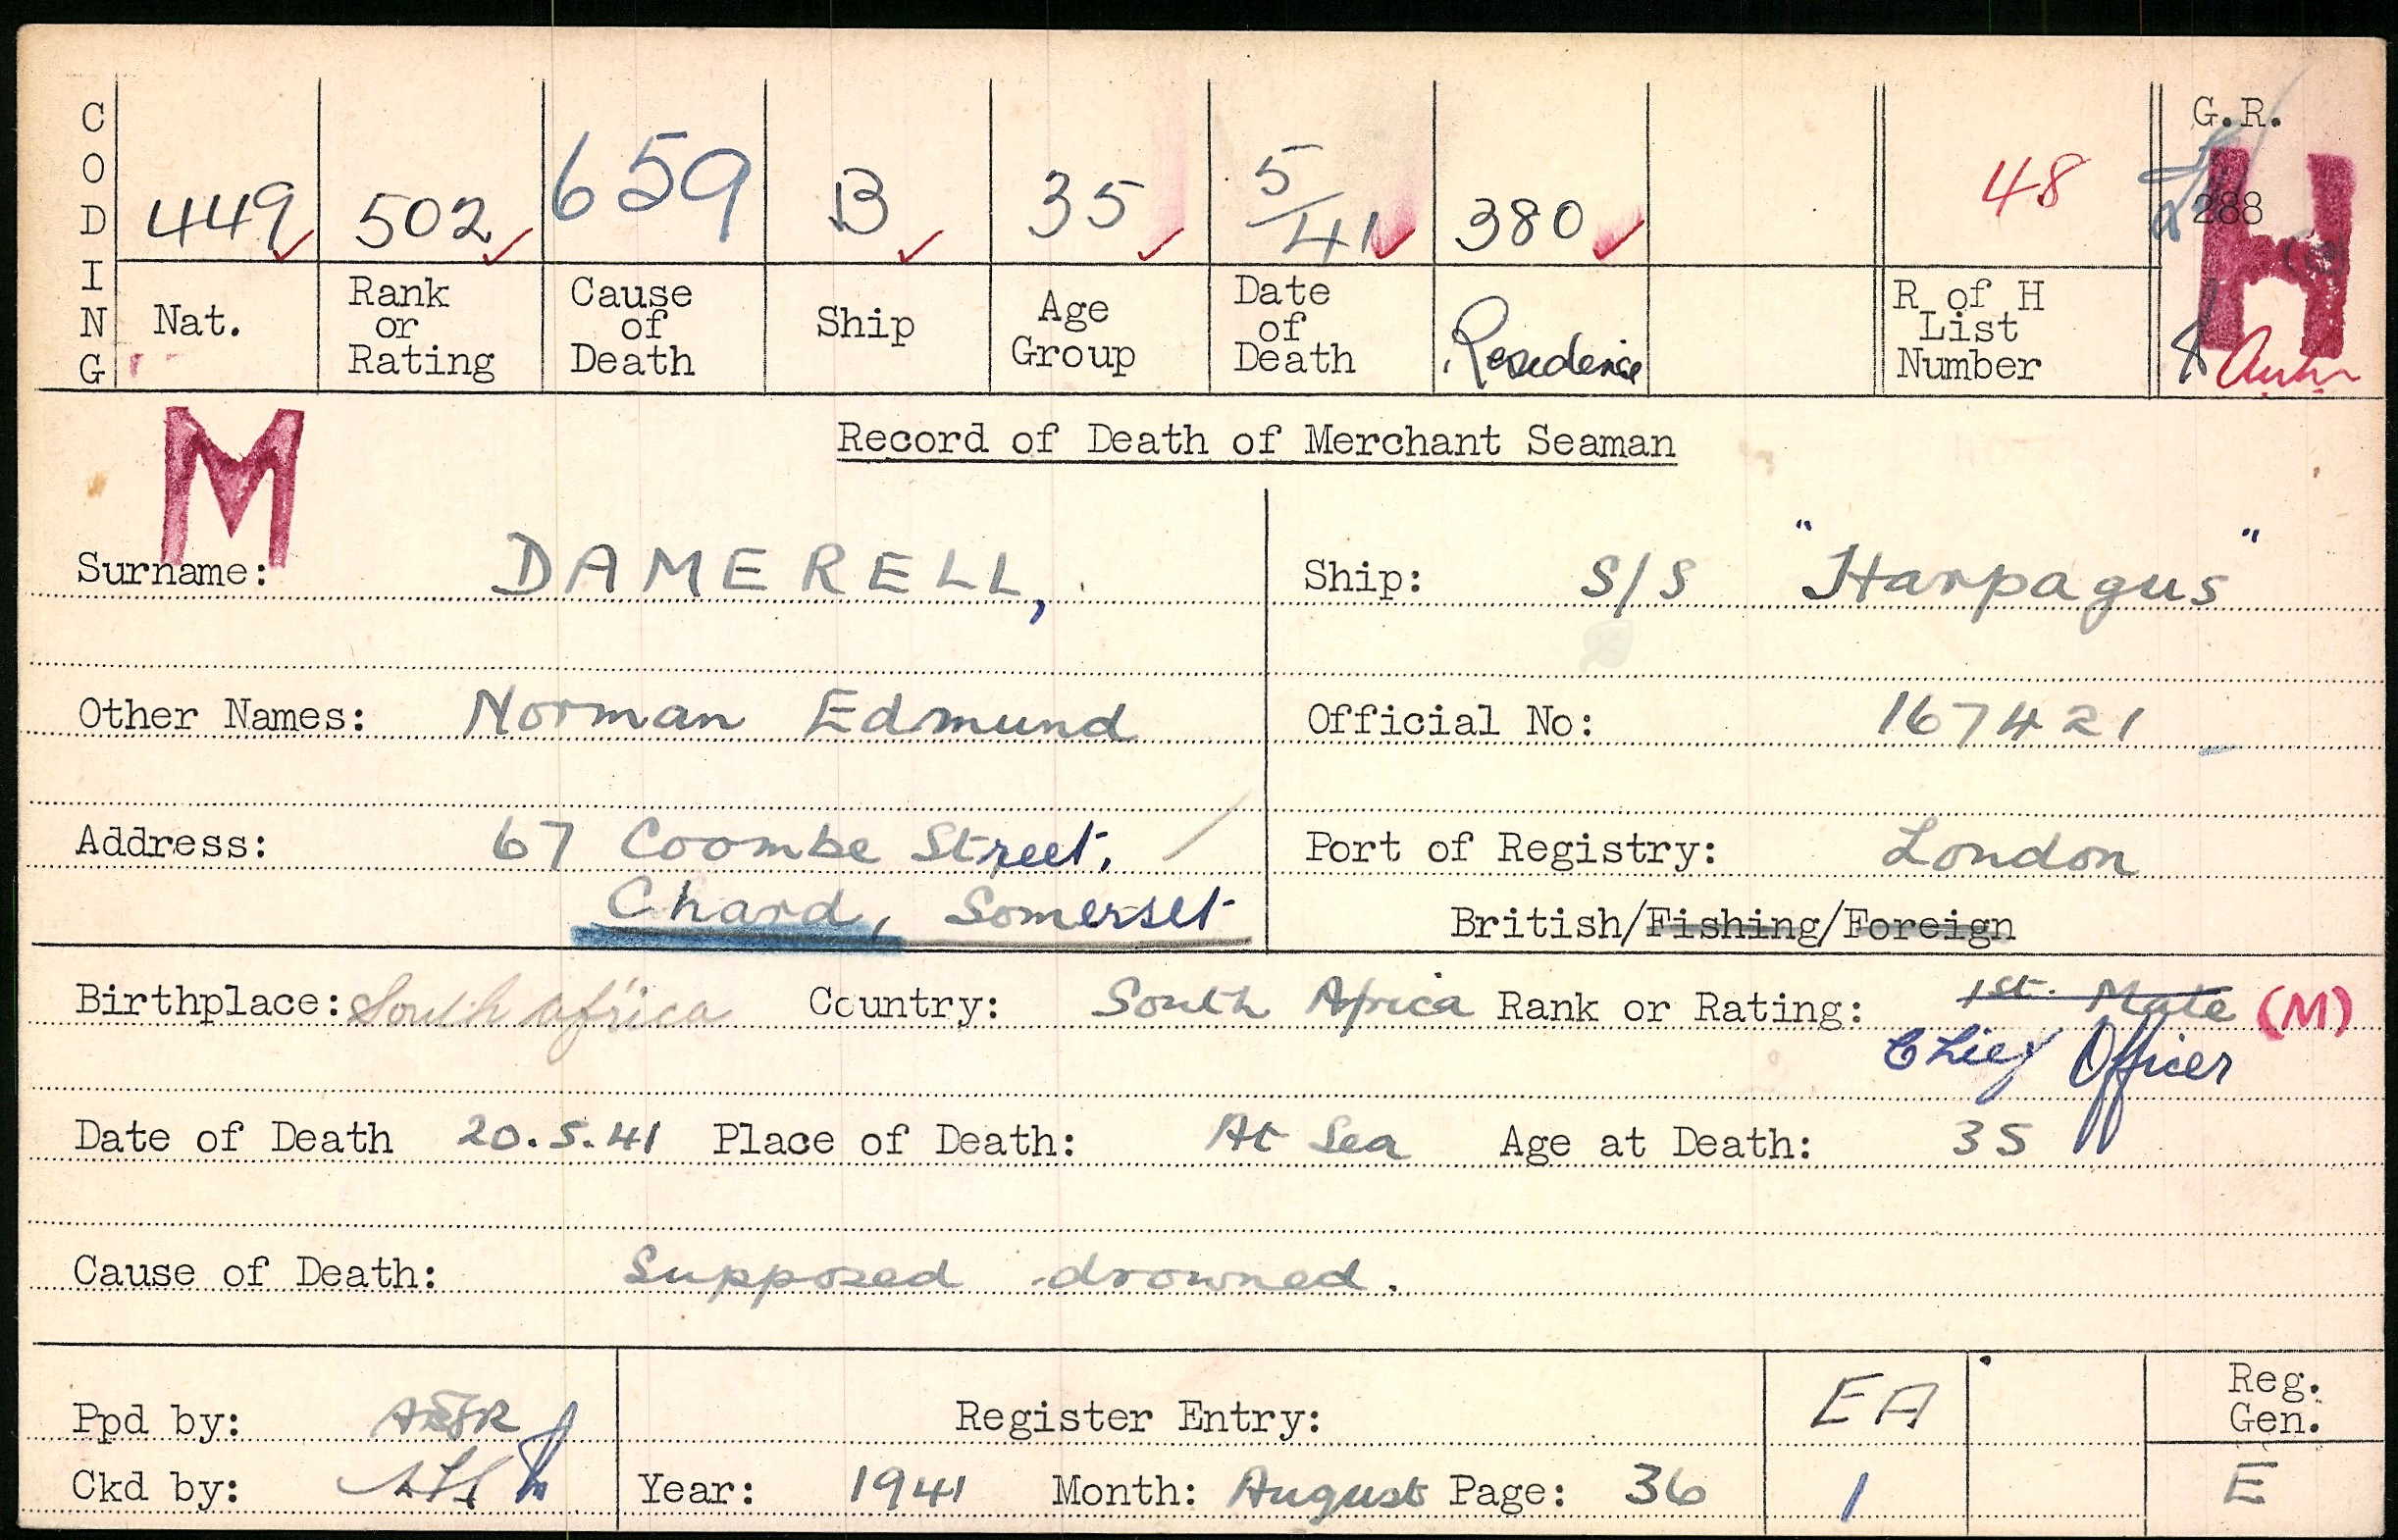 CODING
449 502 659 B 35 5/41 380 48 G.R. 288 H
Nat. Rank or Rating Cause of Death Ship Age Group Date of Death Residence R of H List Number
M
Record of Death of Merchant Seaman
Surname: DAMERELL,
Ship: S/S "Harpagus"
Other Names: Norman Edmund
Official No: 167421
Address: 67 Coombe Street,
Chard, Somerset
Port of Registry: London
British/Fishing/Foreign
Birthplace: South Africa Country: South Africa Rank or Rating: 1st. Mate (M)
Chief Officer
Date of Death 20.5.41 Place of Death: At Sea Age at Death: 35
Cause of Death: Supposed drowned.
Ppd by:
Register Entry: EA Reg. Gen.
Ckd by:
Year: 1941 Month: August Page: 36 1 E